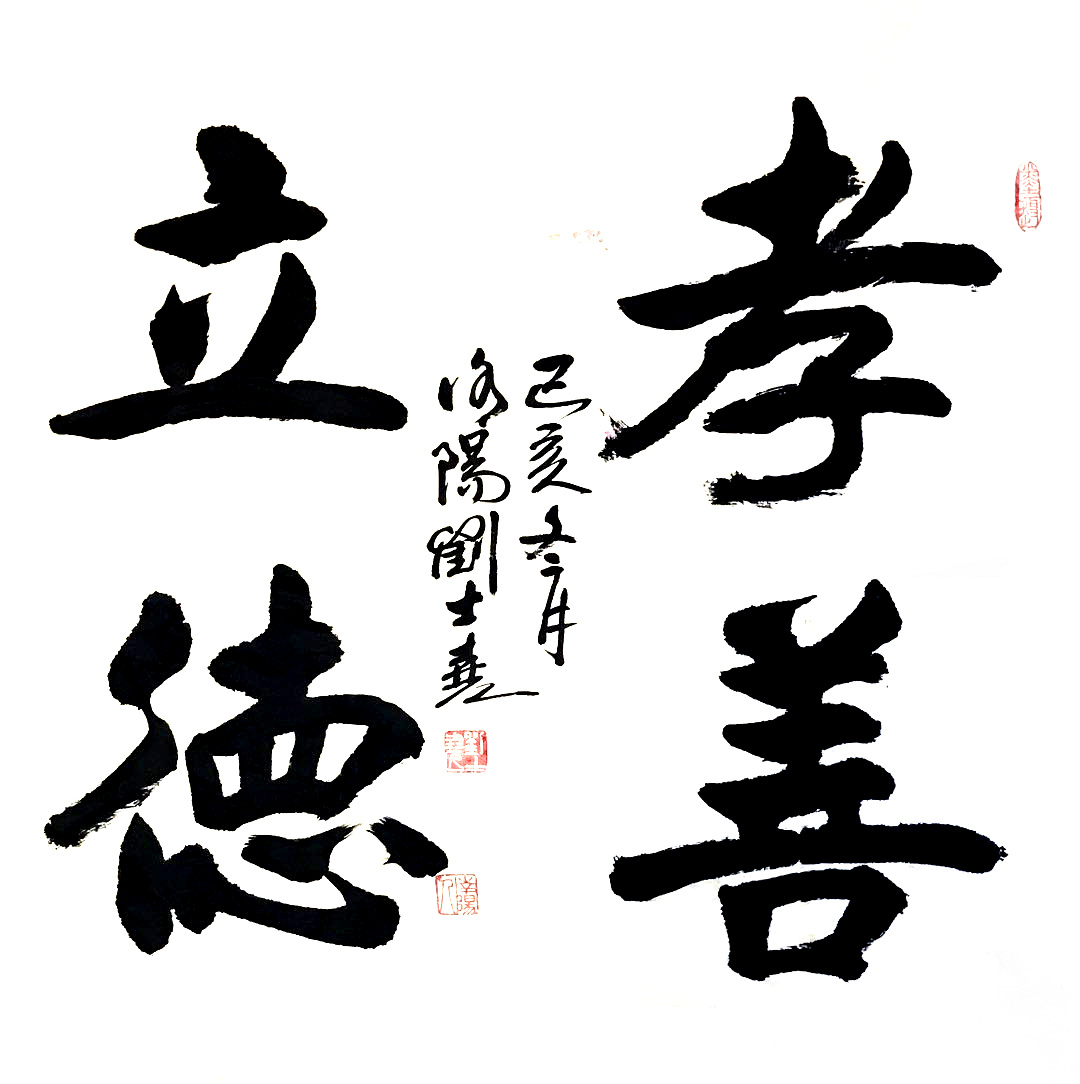 孝善
立德
己亥冬月
洛陽劉士堯